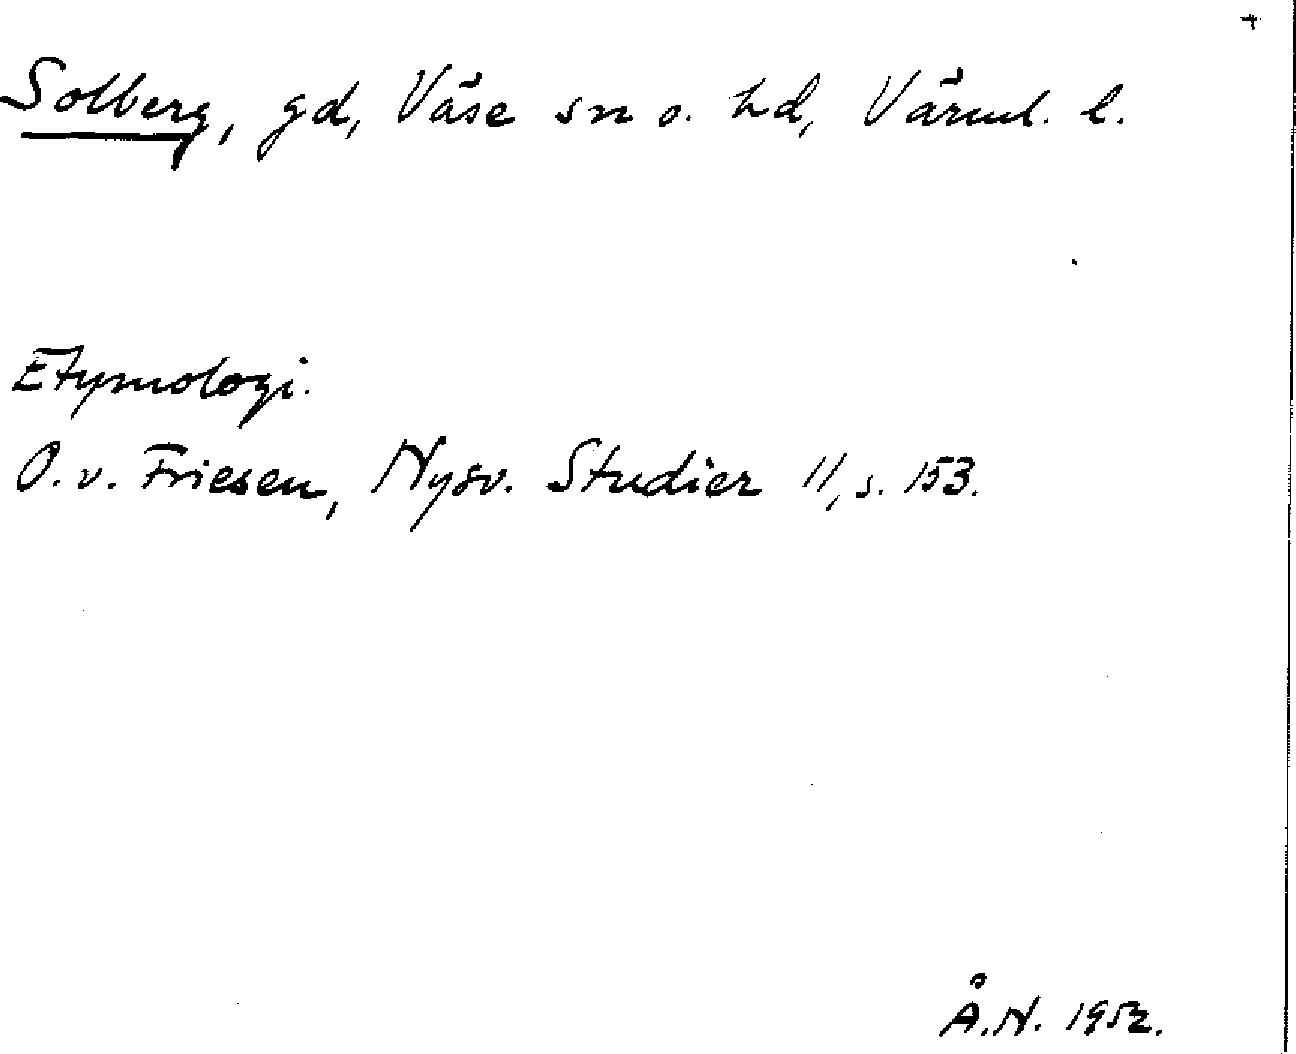 +
Solberg, gd, Väse sn o. hd, Värml. l.
Etymologi.
O. v. Friesen, Nysv. Studier 11, s. 153.
Å.N. 1952.